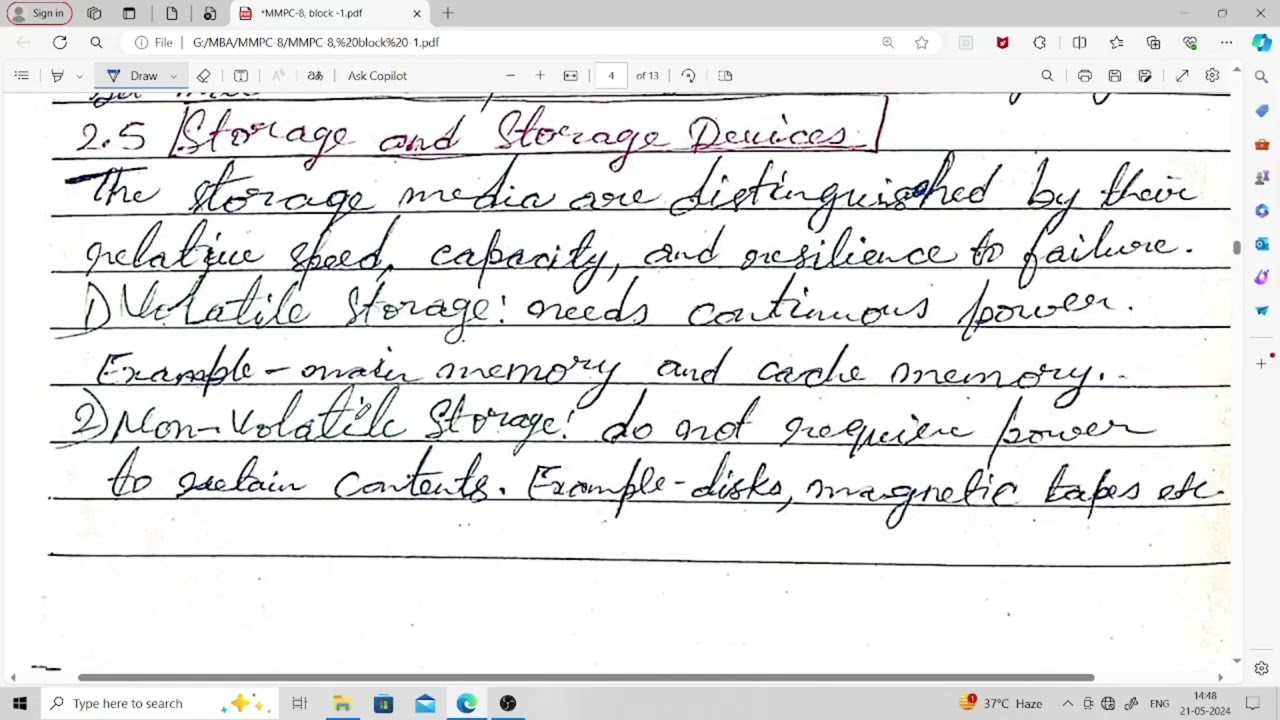 Sign in
*MMPC-8, block -1.pdf
File
G:/MBA/MMPC-8/MMPC-8,%20block%20-1.pdf
Draw
Ask Copilot
4 of 13
2.5 Storage and Storage Devices
The storage media are distinguished by their
relative speed, capacity, and resilience to failure.
1) Volatile Storage: needs continuous power.
Example - main memory and cache memory.
2) Non-Volatile Storage: do not require power
to retain contents. Example - disks, magnetic tapes etc.
Type here to search
37°C Haze
ENG
14:48
21-05-2024